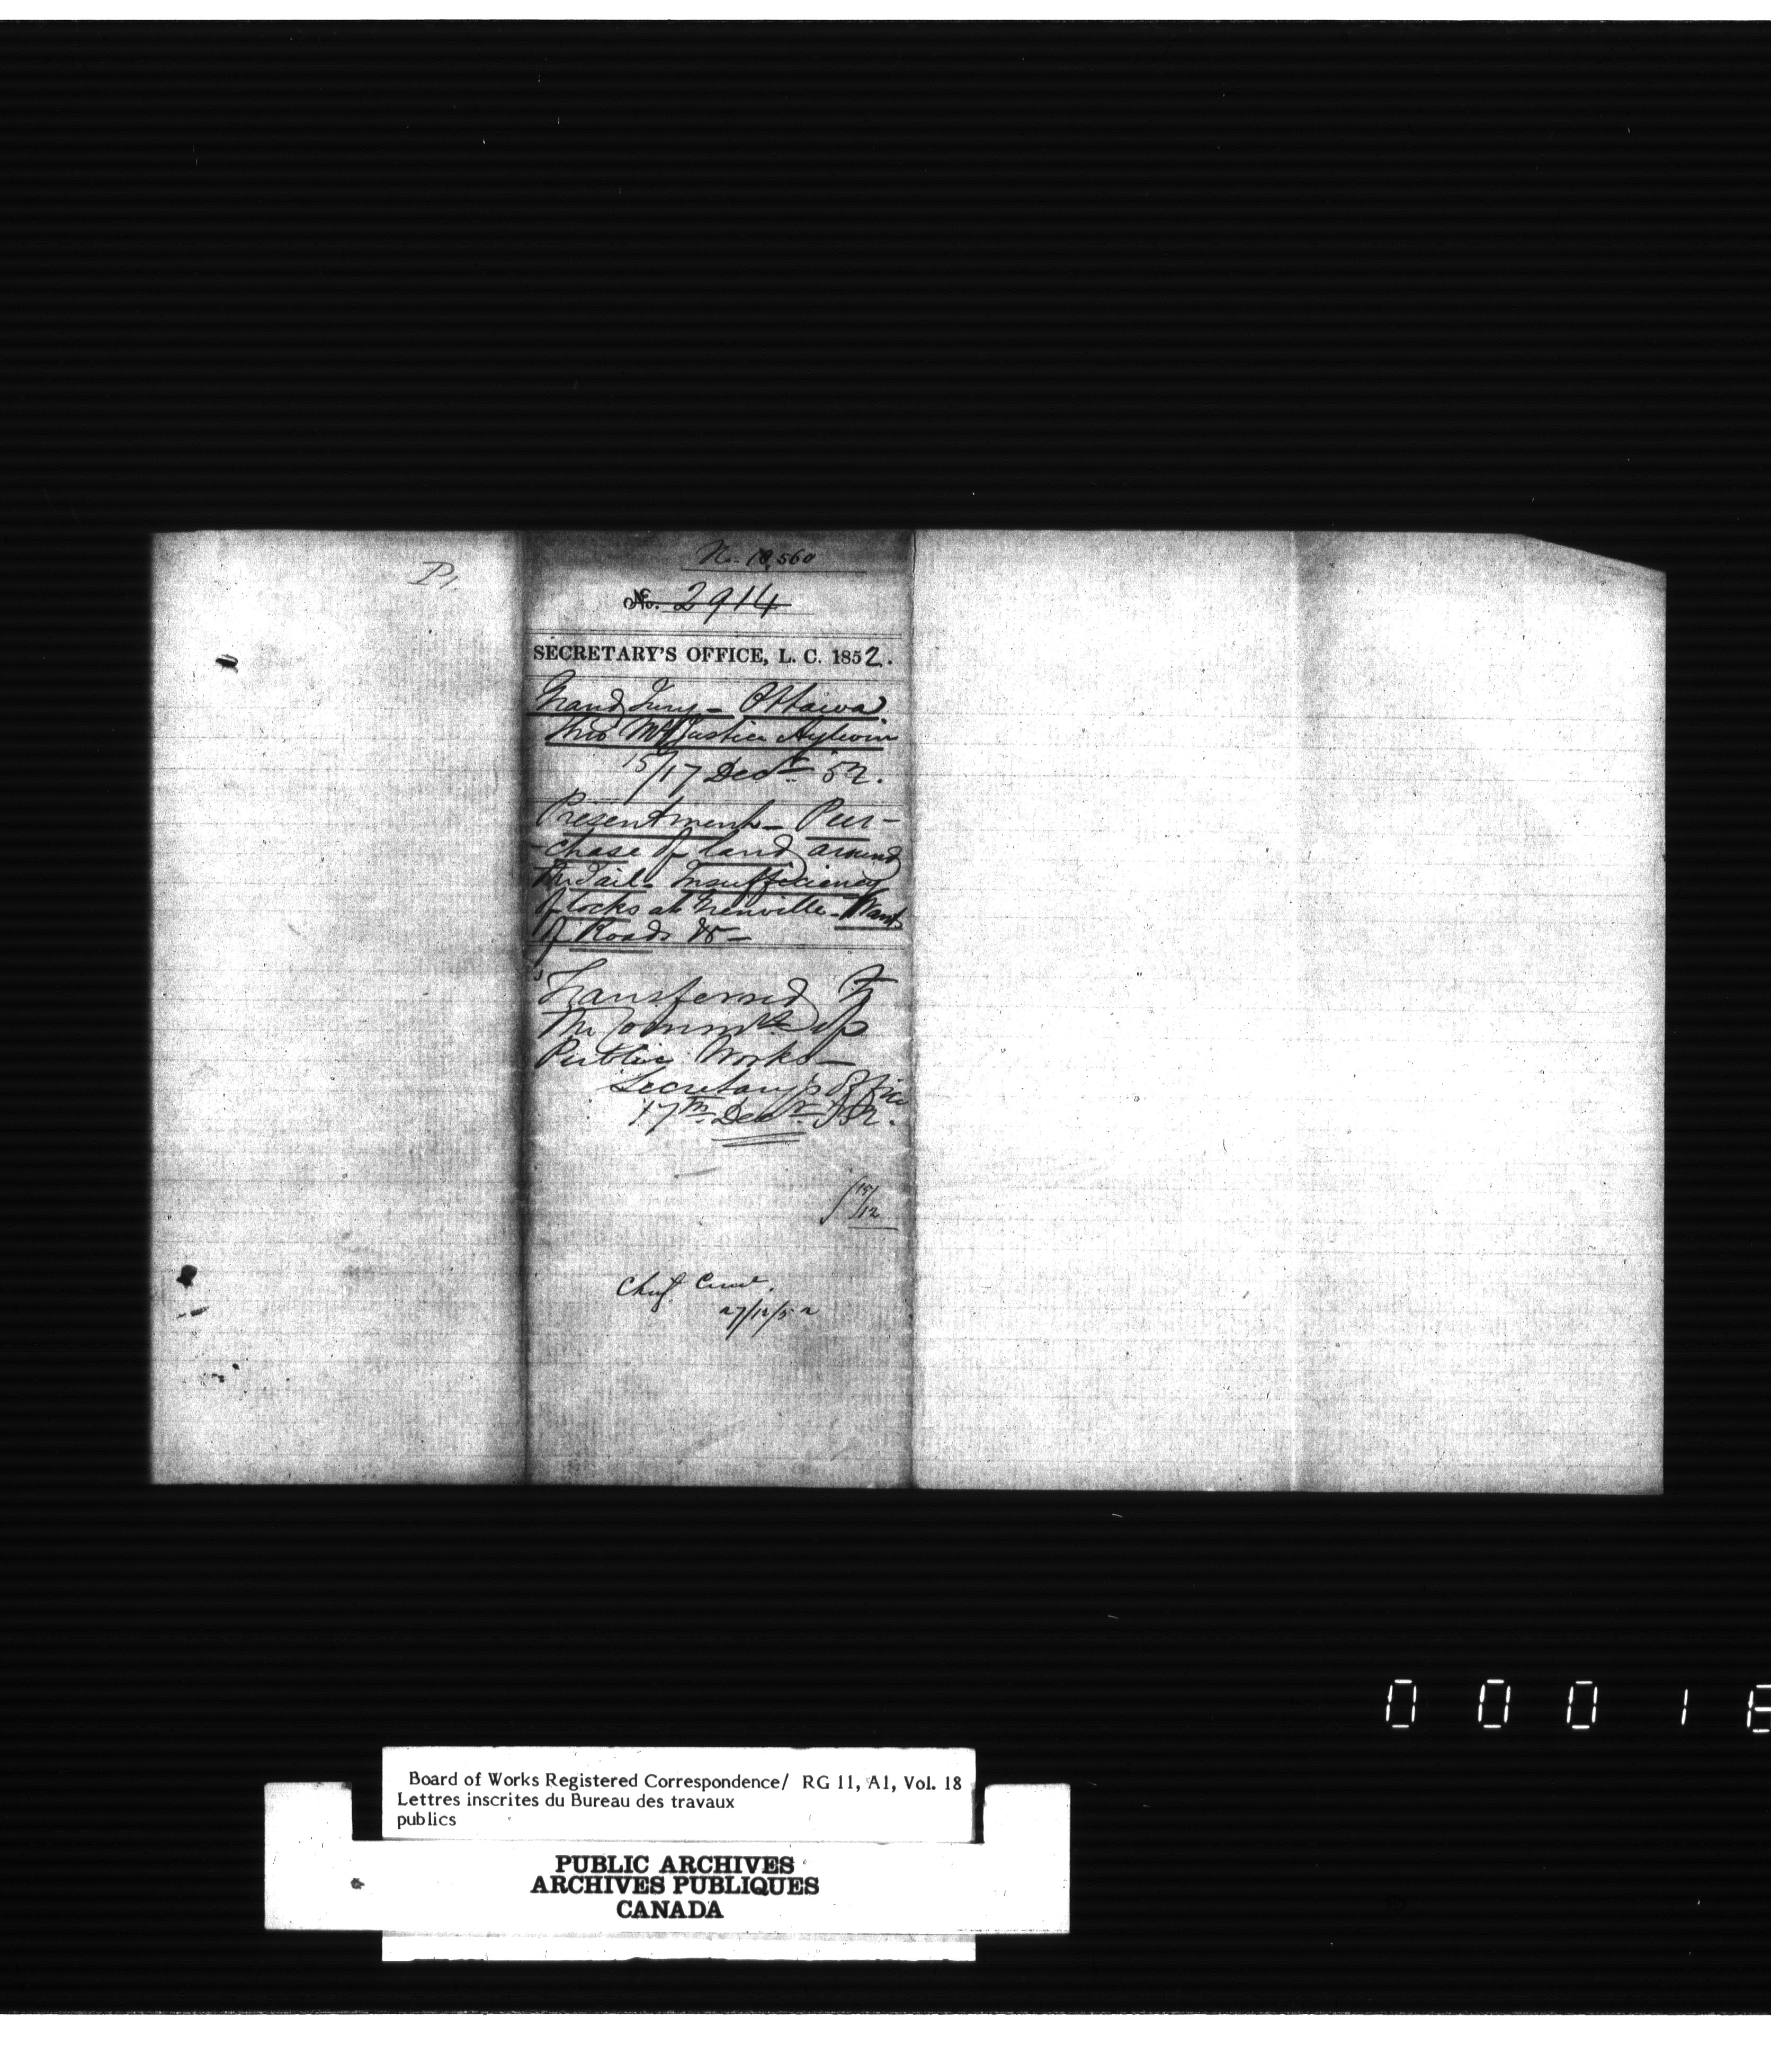 P1,
No. 18,560
No. 2914
SECRETARY'S OFFICE, L. C. 1852.
Grand Jury - Ottawa.
thro Mr Justice Aylwin
15/17 Decr. 52.
Presentment - Pur-
chase of land around
the Jail - Insufficiency
of locks at Grenville - Want
of Roads &c -
Transferred to
The Commrs of
Public Works -
Secretary's Office
17th Decr. 52.
15/12
27/12/52
0 0 0 1 8
Board of Works Registered Correspondence/ RG 11, A1, Vol. 18
Lettres inscrites du Bureau des travaux
publics
PUBLIC ARCHIVES
ARCHIVES PUBLIQUES
CANADA